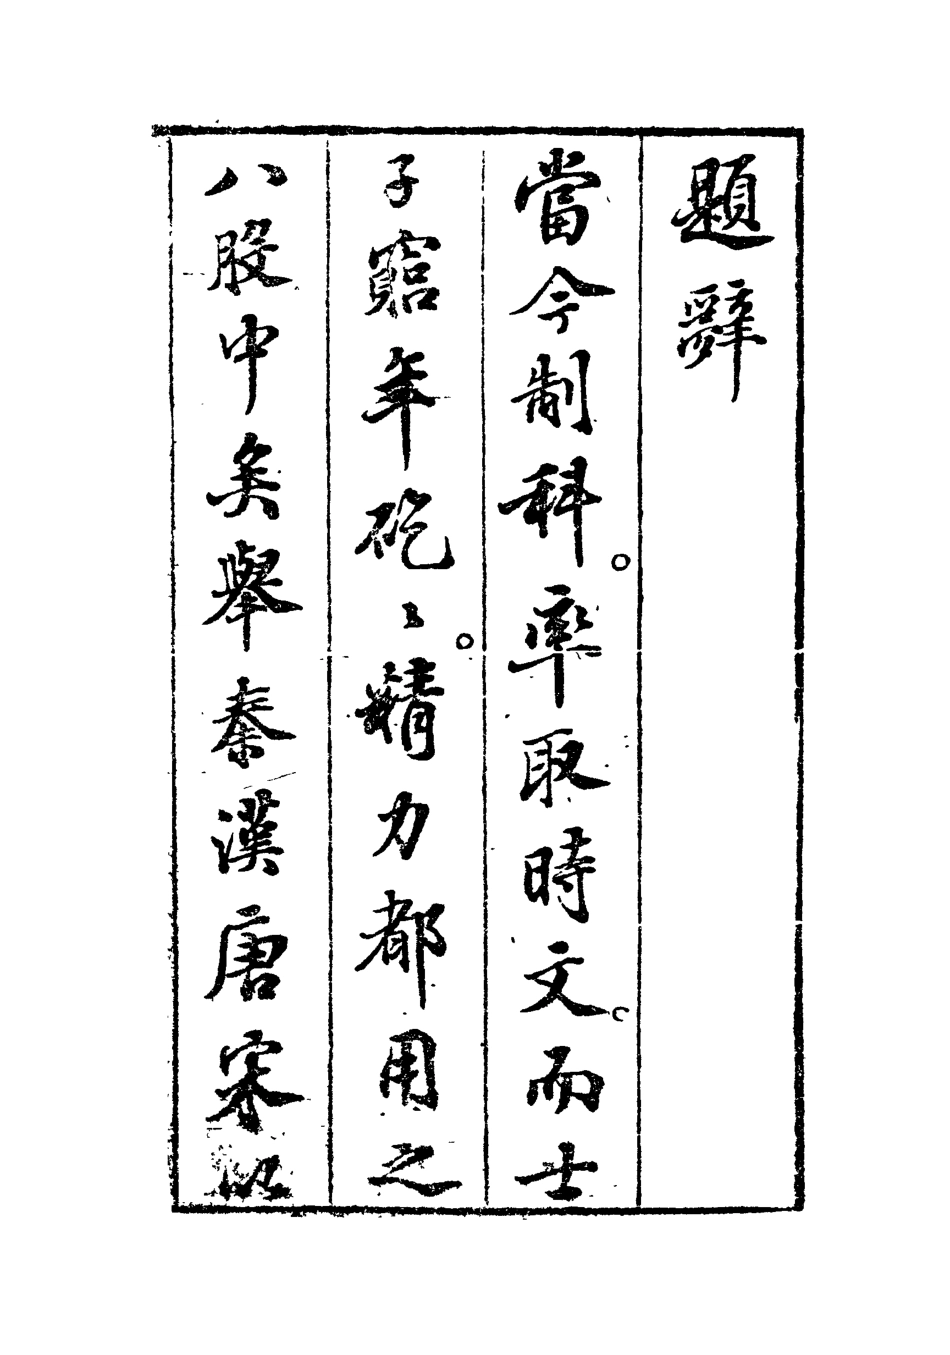 題辭
當今制科。率取時文。而士
子竆年矻〻。精力都用之
八股中矣舉秦漢唐宋以